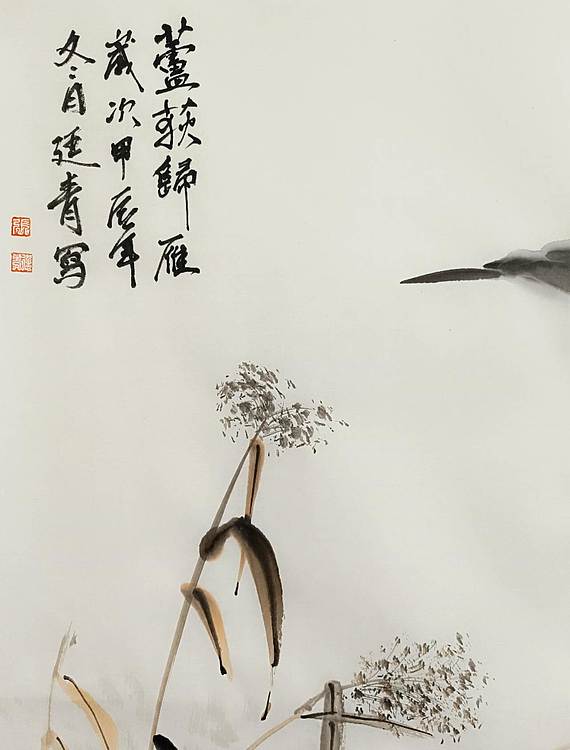 蘆荻歸雁
歲次甲辰年
冬月廷青寫